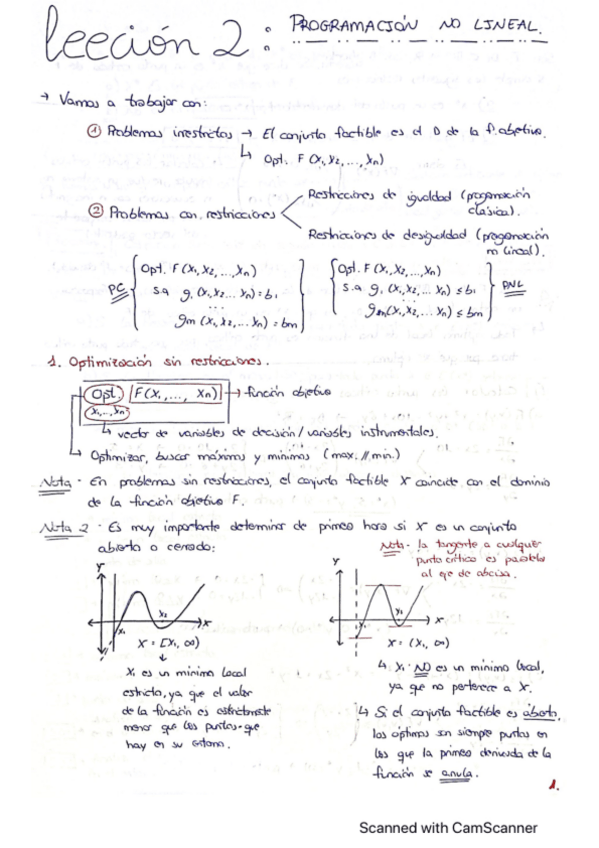 Lección 2: PROGRAMACIÓN NO LINEAL.
→ Vamos a trabajar con:
① Problemas irrestrictos → El conjunto factible es el D de la f. objetivo.
↳ Opt. F (x₁, x₂, ..., xn)
② Problemas con restricciones
Restricciones de igualdad (programación clásica).
Restricciones de desigualdad (programación no lineal).
PC
Opt. F (x₁, x₂, ..., xn)
s.a g₁ (x₁, x₂, ... xn) = b₁
...
gm (x₁, x₂, ... xn) = bm
Opt. F (x₁, x₂, ... xn)
s.a g₁ (x₁, x₂, ... xn) ≤ b₁
...
gm (x₁, x₂, ... xn) ≤ bm
PNL
1. Optimización sin restricciones.
Opt. F(x₁, ..., xn) → función objetivo
x₁, ..., xn
↳ vector de variables de decisión / variables instrumentales.
↳ Optimizar, buscar máximos y mínimos (max. // min.)
Nota · En problemas sin restricciones, el conjunto factible X coincide con el dominio
de la función objetivo F.
Nota 2 · Es muy importante determinar de primera hora si X es un conjunto
abierto o cerrado:
Nota · la tangente a cualquier
punto crítico es paralela
al eje de abcisa.
y
x₁
x₂
x
X = [x₁, ∞)
↓
x₁ es un mínimo local
estricto, ya que el valor
de la función es estrictamente
menor que los puntos que
hay en su entorno.
y
x₁
x₂
x
X = (x₁, ∞)
↳ x₁ NO es un mínimo local,
ya que no pertenece a X.
↳ Si el conjunto factible es abierto,
los óptimos son siempre puntos en
los que la primera derivada de la
función se anula.
1.
Scanned with CamScanner